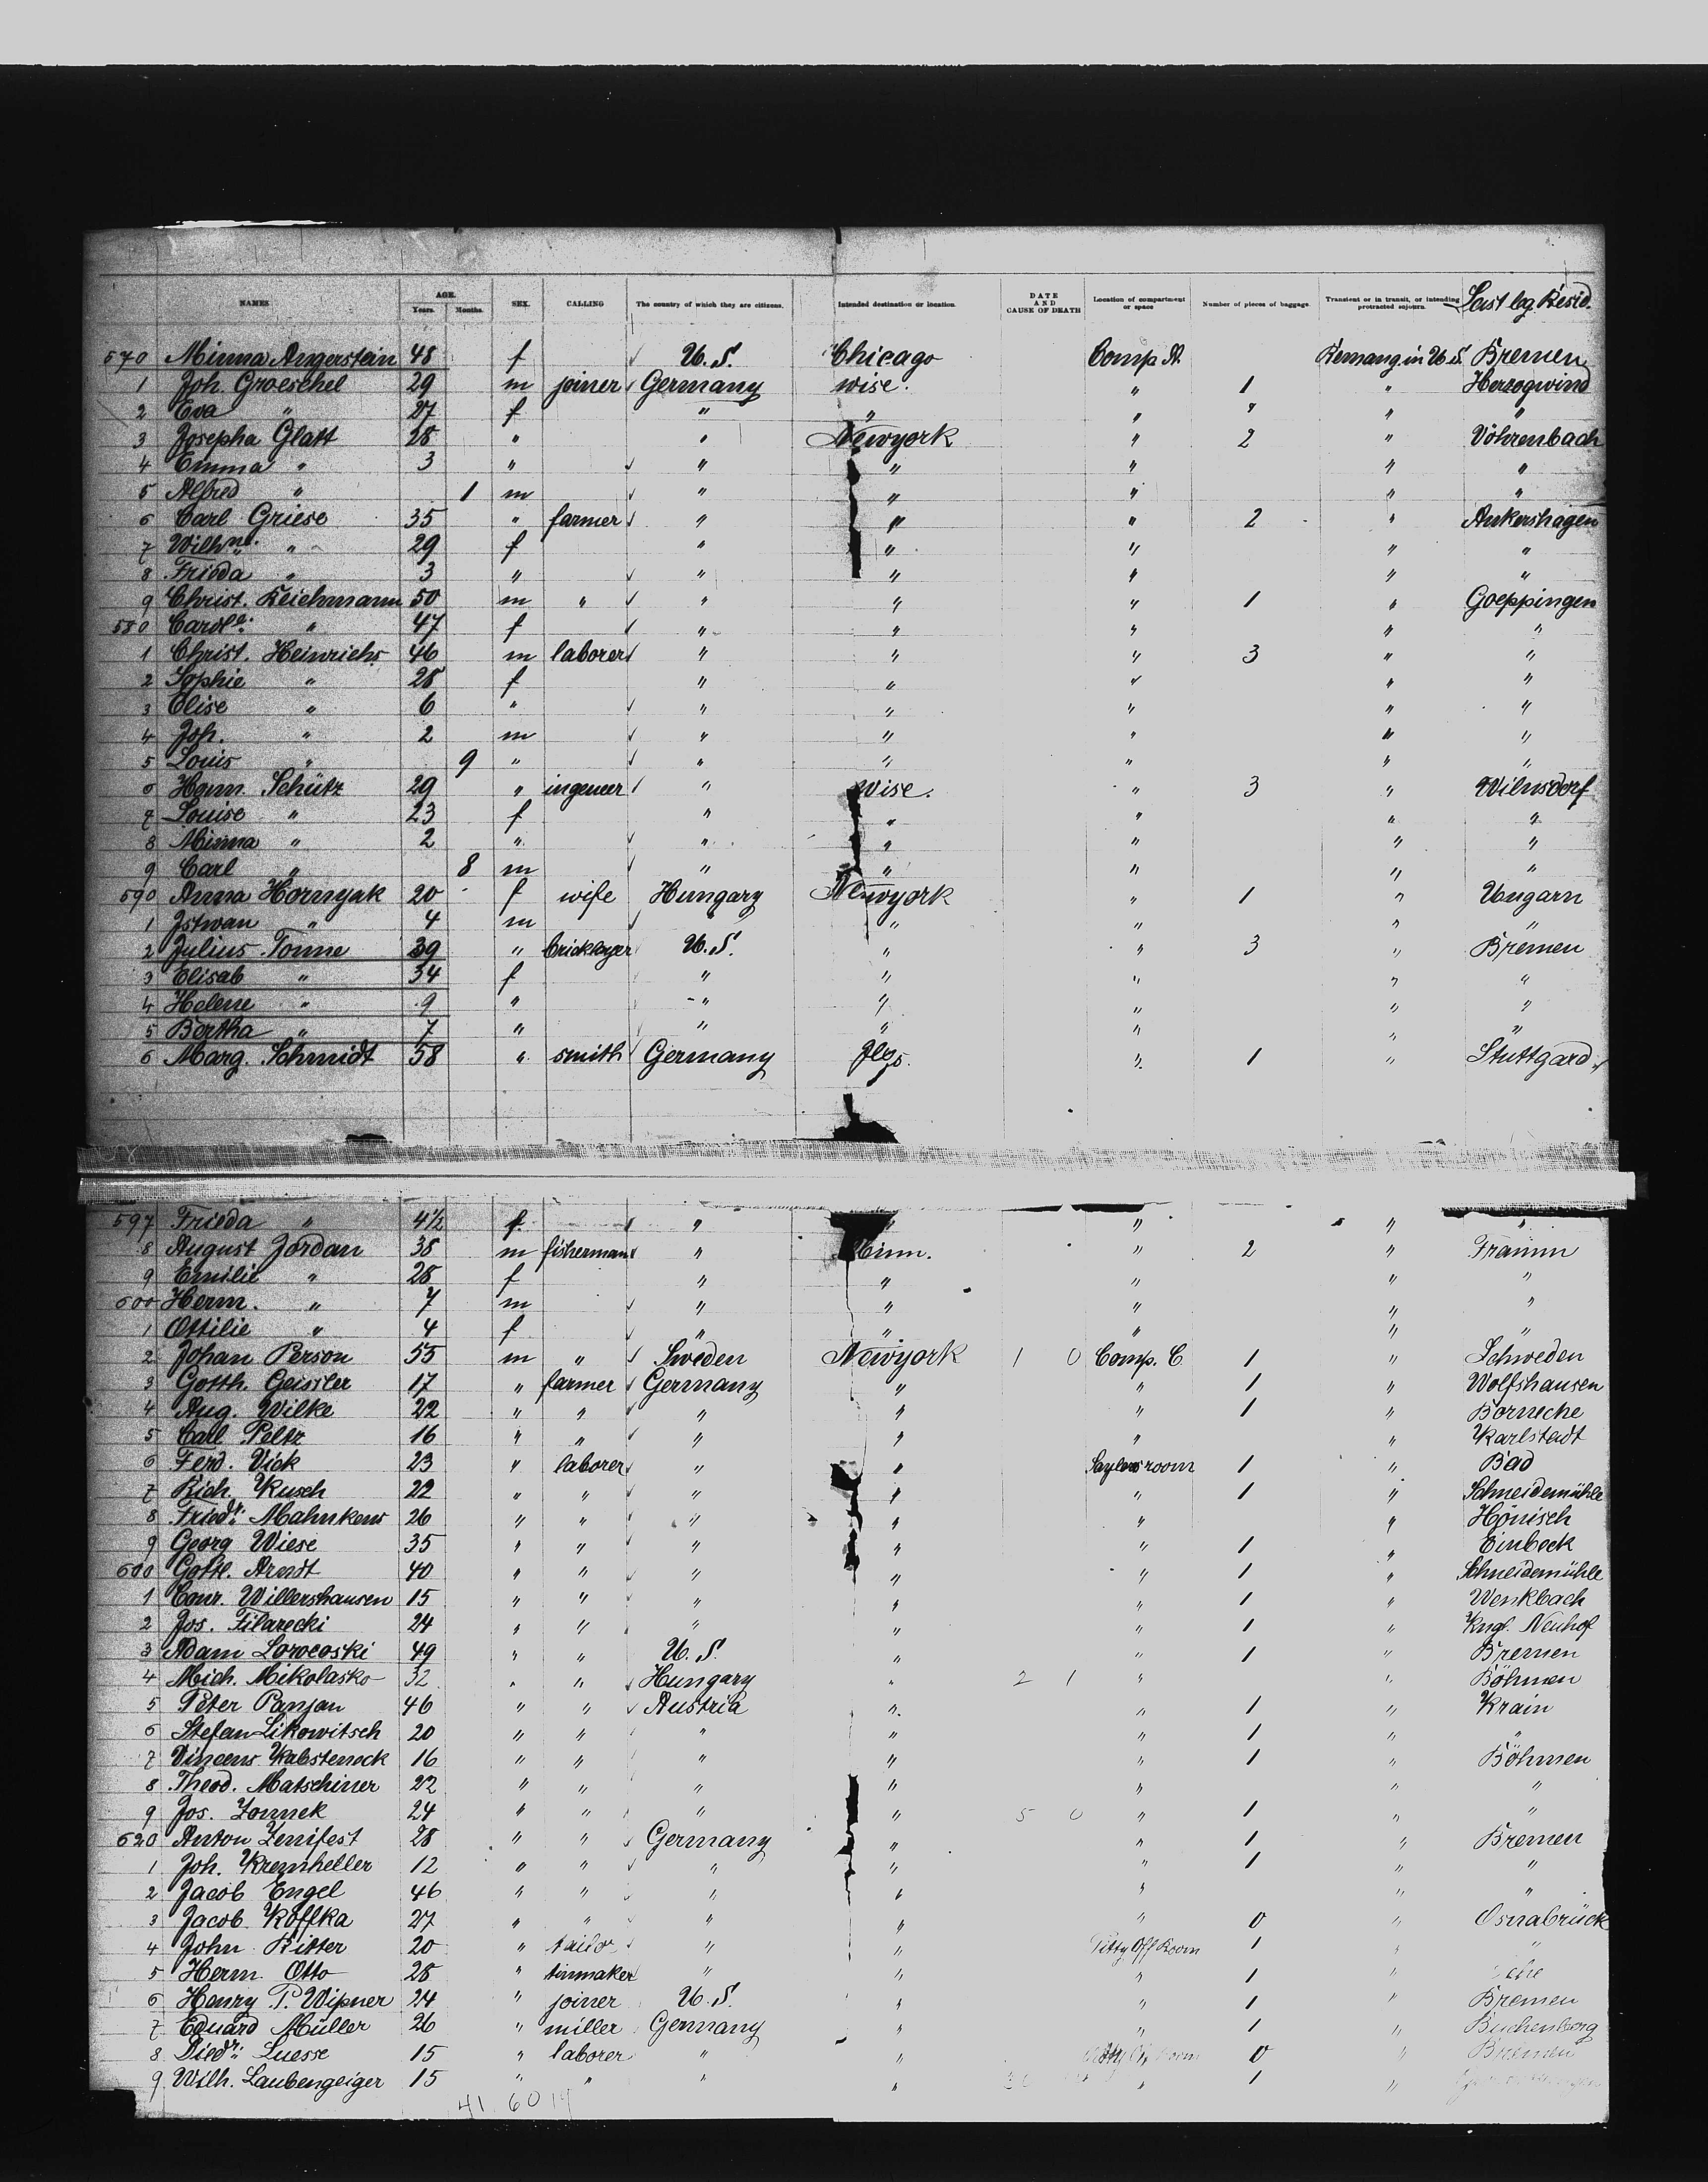 NAMES AGE. Years. Months. SEX. CALLING The country of which they are citizens. Intended destination or location. DATE AND CAUSE OF DEATH Location of compartment or space Number of pieces of baggage. Transient or in transit, or intending protracted sojourn. Last leg. Resid.
570 Minna Angerstein 48 f U.S. Chicago Comp A. Remang in U.S. Bremen
1 Joh. Groeschel 29 m joiner Germany wise. " 1 " Herzogwind
2 Eva " 27 f " " " " " "
3 Josepha Glatt 28 " " Newyork " 2 " Vöhrenbach
4 Emma " 3 " " " " " "
5 Alfred " 1 m " " " " "
6 Carl Griese 35 " farmer " " " 2 " Ankershagen
7 Wilhne. " 29 f " " " " "
8 Frieda " 3 " " " " " "
9 Christ. Reichmann 50 m " " " " 1 " Goeppingen
580 Carole. " 47 f " " " " "
1 Christ. Heinrichs 46 m laborer " " " 3 " "
2 Sophie " 28 f " " " " "
3 Elise " 6 " " " " " "
4 Joh. " 2 m " " " " "
5 Louis " 9 " " " " " "
6 Herm. Schütz 29 " ingeneer " wise. " 3 " Wilnsdorf
7 Louise " 23 f " " " " "
8 Minna " 2 " " " " " "
9 Carl " 8 m " " " " "
590 Anna Hornyak 20 f wife Hungary Newyork " 1 " Ungarn
1 Istwan " 4 m " " " " "
2 Julius Tonne 39 " bricklayer U.S. " " 3 " Bremen
3 Elisab " 34 f " " " " "
4 Helene " 9 " " " " " "
5 Bertha " 7 " " " " " "
6 Marg. Schmidt 58 " smith Germany Ills. " 1 " Stuttgard
597 Frieda " 4½ f " " " " "
8 August Jordan 38 m fisherman " Minn. " 2 " Framm
9 Emilie " 28 f " " " " "
600 Herm. " 7 m " " " " "
1 Ottilie " 4 f " " " " "
2 Johan Person 55 m " Sweden Newyork 1 0 Comp. C 1 " Schweden
3 Gotth. Geissler 17 " farmer Germany " " 1 " Wolfshausen
4 Aug. Wilke 22 " " " " " 1 " Bornecke
5 Carl Peltz 16 " " " " " " Karlstadt
6 Ferd. Vick 23 " laborer " " Saylors room 1 " Bad
7 Rich. Kusch 22 " " " " " 1 " Schneidemühle
8 Friedr. Mahnkens 26 " " " " " " Hönisch
9 Georg Wiese 35 " " " " " 1 " Einbeck
610 Gottl. Arndt 40 " " " " " 1 " Schneidemühle
1 Conr. Willershausen 15 " " " " " 1 " Wenkbach
2 Jos. Filarecki 24 " " " " " 1 " Kngl. Neuhof
3 Adam 49 " " U.S. " " 1 " Bremen
4 Mich. Mikolasko 32 " " Hungary " 2 1 " " Böhmen
5 Peter Panjan 46 " " Austria " " 1 " Krain
6 Stefan Likowitsch 20 " " " " " 1 " "
7 Vincens 16 " " " " " 1 " Böhmen
8 Theod. Matschiner 22 " " " " " " "
9 Jos. Zonnek 24 " " " " 5 0 " 1 " "
620 Anton Zenifest 28 " " Germany " " 1 " Bremen
1 Joh. Kremheller 12 " " " " " 1 " "
2 Jacob Engel 46 " " " " " " "
3 Jacob Koffka 27 " " " " " 0 " Osnabrück
4 John Ritter 20 " tailor " " Petty Off Room 1 " "
5 Herm. Otto 28 " tinmaker " " " 1 "
6 Henry P. Wipner 24 " joiner U.S. " " 1 " Bremen
7 Eduard Müller 26 " miller Germany " " 1 " Buchenberg
8 Diedr. Luesse 15 " laborer " " 0 " Bremen
9 Wilh. Laubengeiger 15 " " " " " 1 "
41 60 19